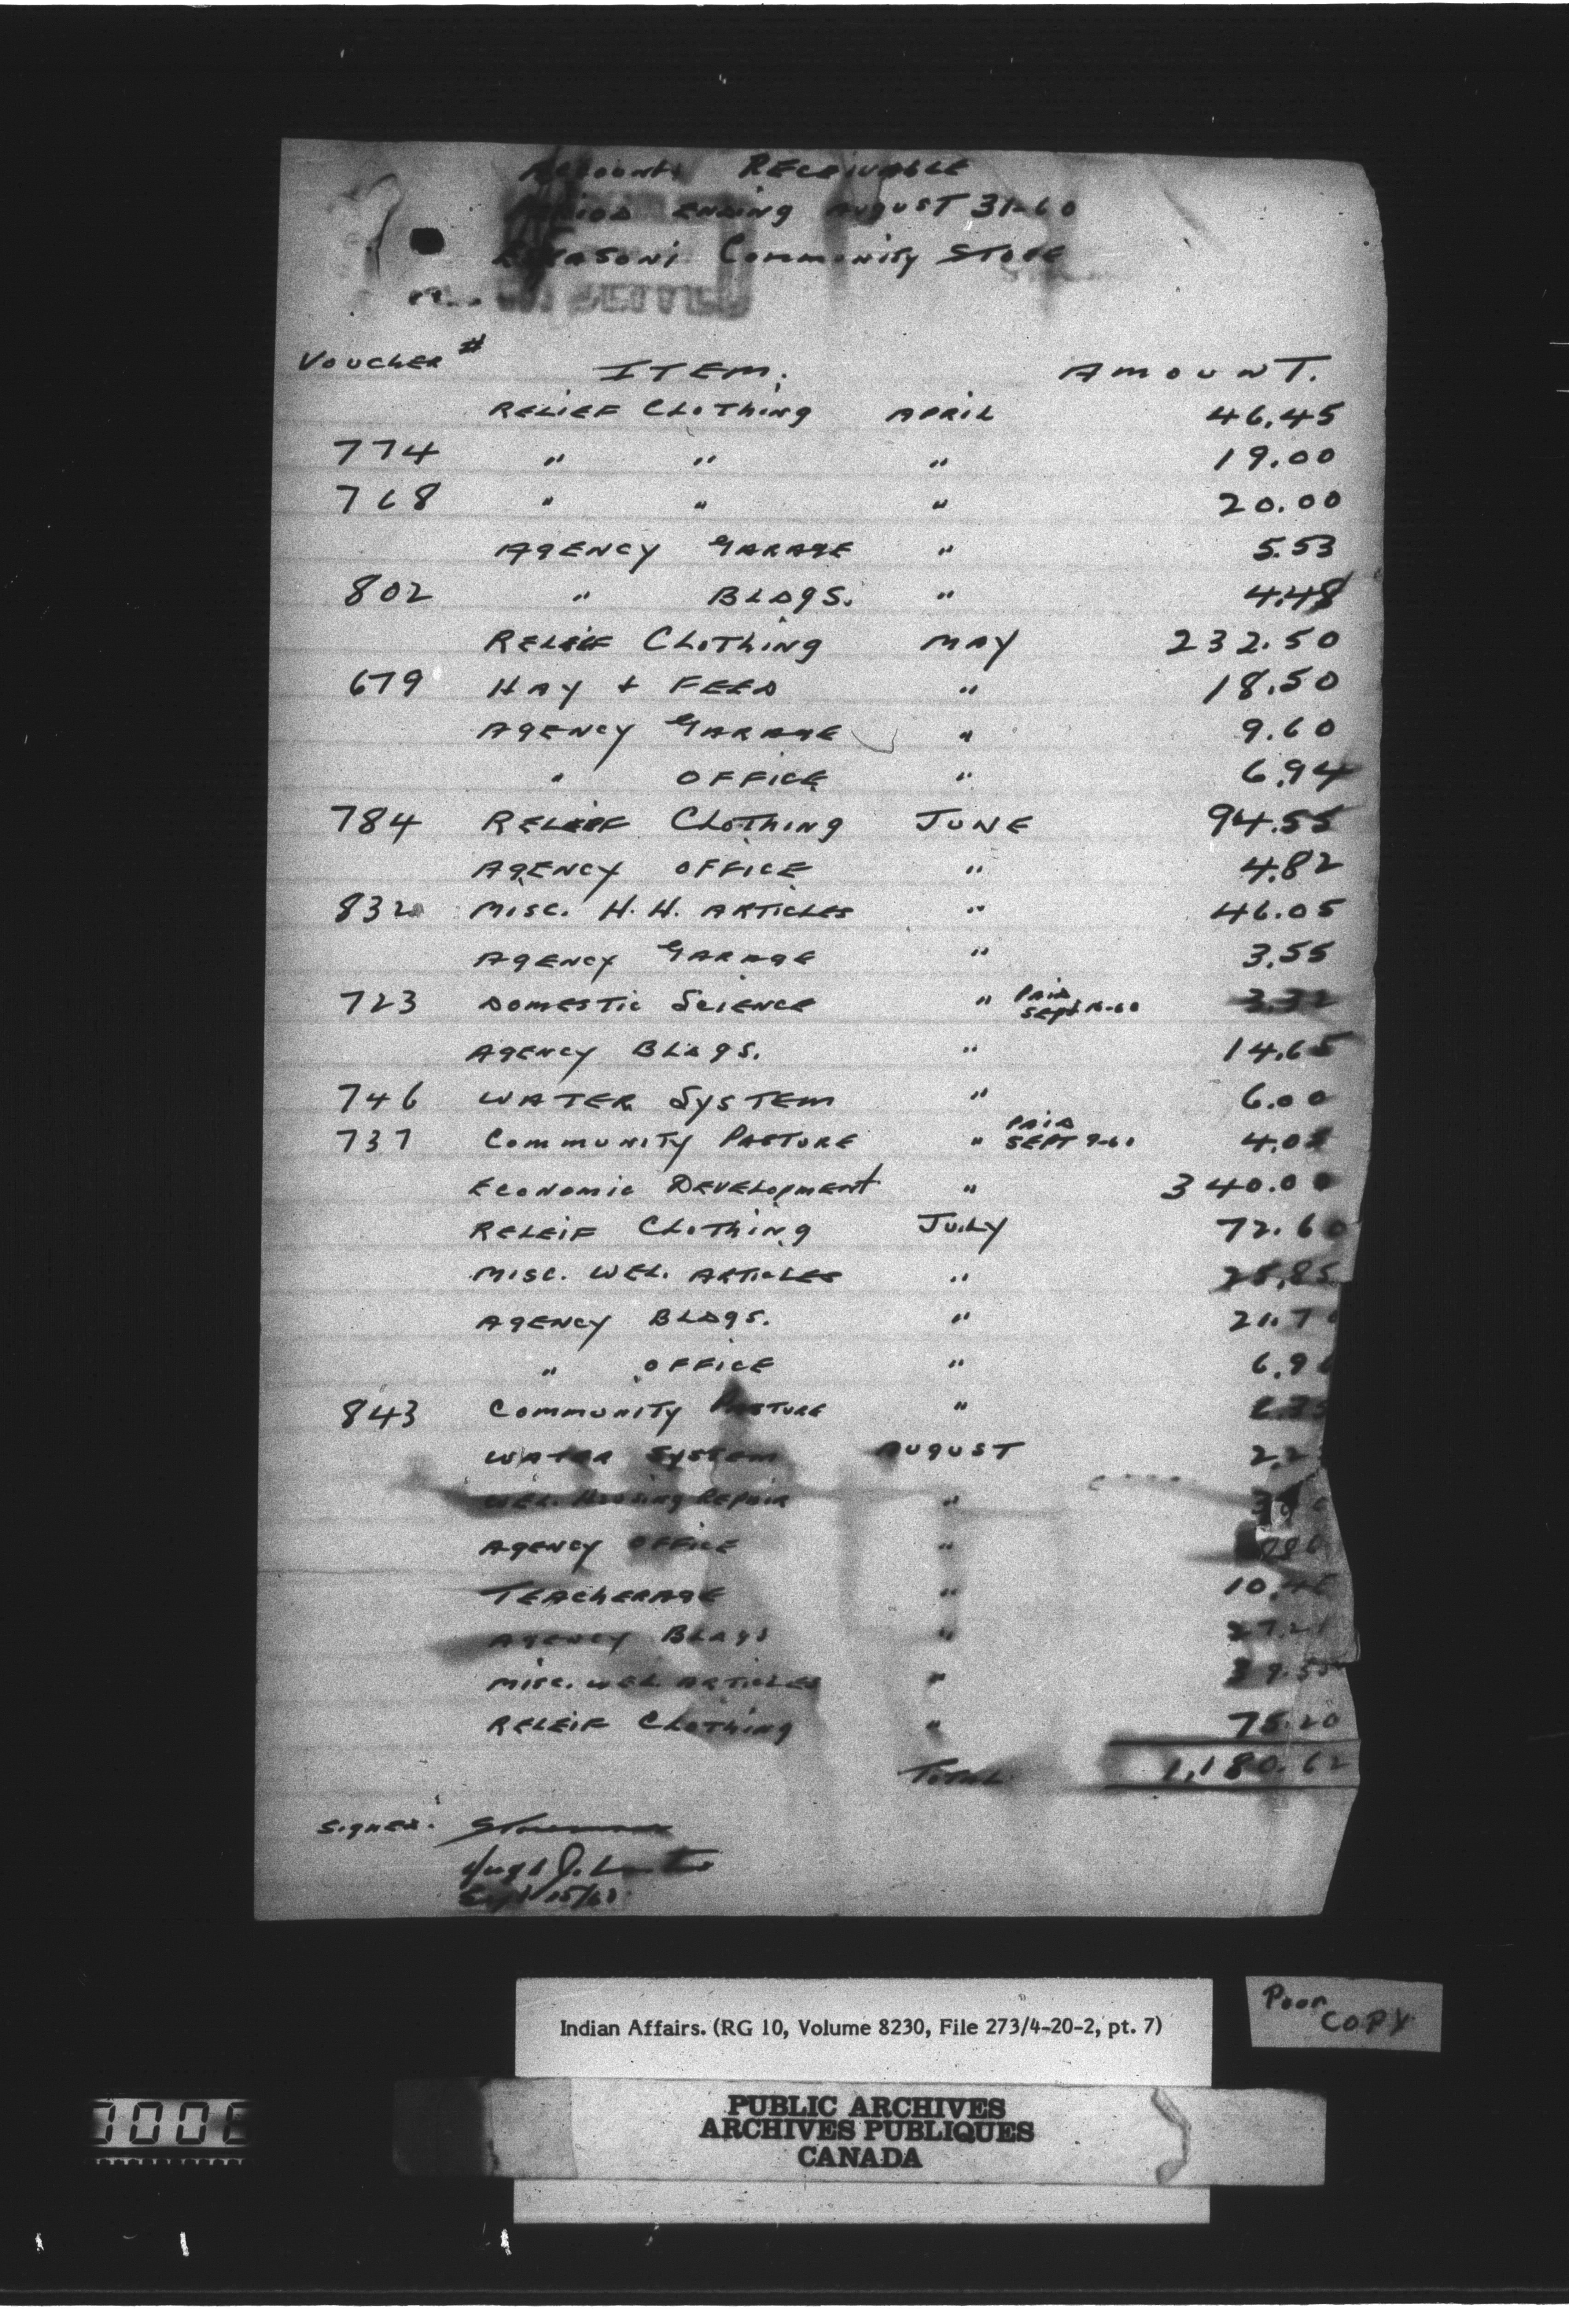 Accounts Receivable
Period Ending August 31-60
Eskasoni Community Store
Voucher # Item. Amount.
Relief Clothing April 46.45
774 " " " 19.00
768 " " " 20.00
Agency Garage " 5.53
802 " Bldgs. " 4.48
Relief Clothing May 232.50
679 Hay + Feed " 18.50
Agency Garage " 9.60
" Office " 6.94
784 Relief Clothing June 94.55
Agency Office " 4.82
832 Misc. H.H. Articles " 46.05
Agency Garage " 3.55
723 Domestic Science " Paid Sept 16-60 3.32
Agency Bldgs. " 14.65
746 Water System " 6.00
737 Community Pasture " Paid Sept 9-60
Economic Development " 340.00
Releif Clothing July 72.60
Misc. Wel. Articles " 25.85
Agency Bldgs. "
" Office "
843 Community Pasture "
Water System August
Wel. Housing Repair "
Agency Office "
Teacherage "
Agency Bldgs "
Misc. Wel Articles "
Releif Clothing " 75.20
Total. 1,180.62
Signed:
Hugh J.
Sept 15/60
Indian Affairs. (RG 10, Volume 8230, File 273/4-20-2, pt. 7)
Poor
Copy
PUBLIC ARCHIVES
ARCHIVES PUBLIQUES
CANADA